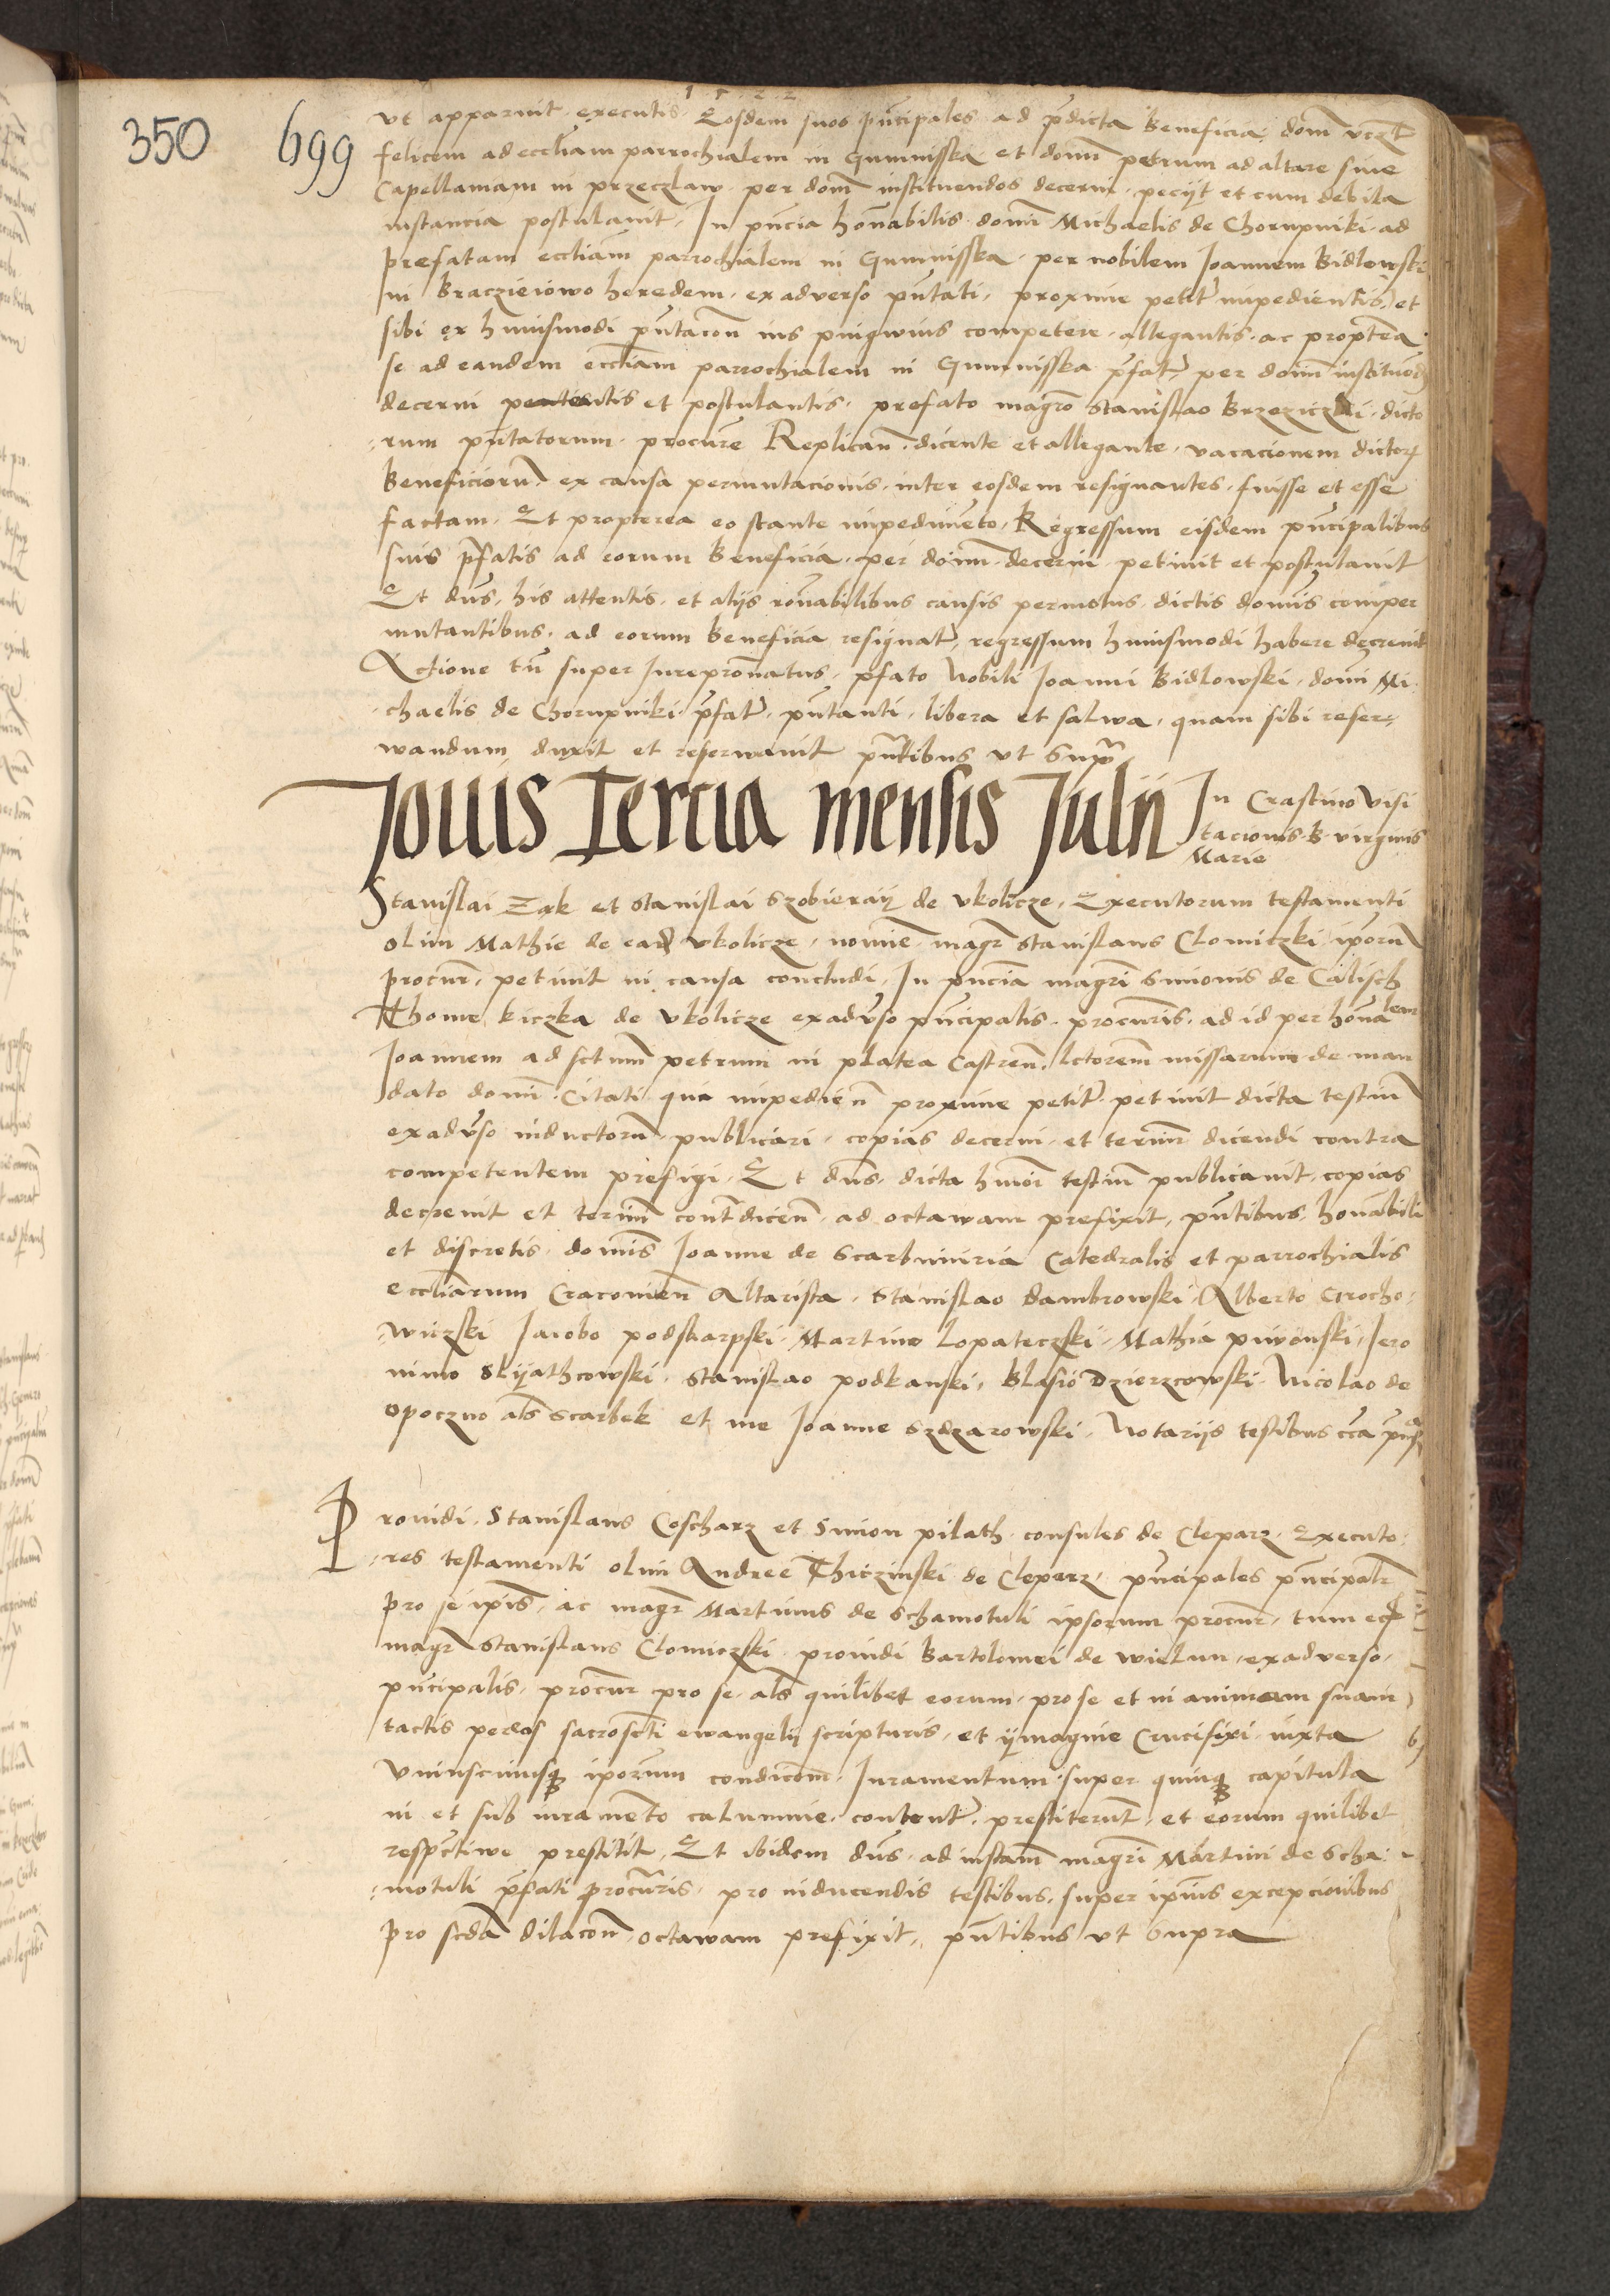 1522
350 699
vt apparuit executis Eosdem suos pn̄cipales ad pd̄icta Beneficia dom̄ vczt
felicem ad eccliam parrochialem in Gumnisska et domī petrum ad altare siue
Capellaniam in przeczlaw per dom̄ instituendos decerni peciit et cum debita
instancia postulauit, In pn̄cia hon̄abilis domī Michaelis de Chorupniki ad
prefatam eccliam parrochialem in Gumnisska per nobilem Joannem Bidlowski
in Braczieiowo heredem ex aduerso pn̄tati, proxime petit̄ impedientis, et
sibi ex huiusmodi pn̄tacon̄ ius pinguius competere allegantis ac propterea
se ad eandem eccliam parrochialem in Gumnisska pf̄at̄ per domī instituend
decerni petentis et postulantis, prefato magro Stanislao Brzeziczki dicto
rum pn̄tatorum procurē Replican̄ dicente et allegante, vacacionem dictor
Beneficiorū ex causa permutacionis inter eosdem resignantes fuisse et esse
factam, Et propterea eo stante impedimēto, Regressum eisdem pn̄cipalibus
suis pf̄atis ad eorum Beneficia per domī decerni petiuit et postulauit
Et dn̄s, his attentis et alijs ron̄abilibus causis permotus dictis domīs comper
mutantibus ad eorum Beneficia resignat̄ regressum huiusmodi habere decreuit
Actione tn̄ super Jurepron̄atus, pf̄ato Nobili Joanni Bidlowski, domī Mi
chaelis de Chorupniki pf̄at̄ pn̄tanti, libera et salwa, quam sibi reser
wandum duxit et reserwauit pn̄tibus vt Supra
Jouis Tercia mensis Julij In Crastino visi
tacionis B virginis
Marie
Stanislai Zak et Stanislai Szobieraij de Vkolicze, Executorum testamenti
olim Mathie de ead Vkolicze, nomīe magr̄ Stanislaus Clomiczki ip̄orū
procur̄, petiuit in causa concludi, In pn̄cia magrī Simonis de Calisch
Thome kiczka de Vkolicze exadv̄so pn̄cipalis procuris ad id per hon̄alem
Joannem ad sctum petrum in platea Castren̄ lctorem missarum de man
dato domī Citati qui impedien̄ proxime petit̄ petiuit dicta testiū
exadv̄so inductorū publicari, copias decerni et termī dicendi contra
competentem prefigi, Et dn̄s dicta hmōi testiū publicauit, copias
decreuit et termī cont̄dicen̄ ad octawam prefixit, pn̄tibus hon̄abili
et discretis domīs Joanne de Scarbimiria Catedralis et parrochialis
eccliarum Cracouien̄ Altarista, Stanislao Dambrowski Alberto Grocho
wiczki Jacobo podskarpski Martino Lopateczki, Mathia piwonski, Jero
nimo Slijathcowski, Stanislao podkanski, Blasio Dzierzcowski Nicolao de
opoczno als̄ Scarbek et me Joanne Szdzarowski, Notarijs testibus cc̄a pm̄ss
Prouidi Stanislaus Coscharz et Simon pilath consules de Cleparz Executo
res testamenti olim Andree Thiczinski de Cleparz, pn̄cipales pn̄cipalr̄
pro se ip̄is, ac magr̄ Martinus de Schamotuli ipsorum procur̄, tum eci
magr̄ Stanislaus Clomiczki prouidi Bartolomei de wielun exaduerso
pn̄cipalis, procur̄ pro se als̄ quilibet eorum pro se et in animam suam
tactis per eos sacroscti ewangelij scripturis et ijmagine Crucifixi iuxta
vniuscuiusq ip̄orum condicom̄ Juramentum super quinq capitula
in et sub iuramēto calumnie content̄ prestiterūt et eorum quilibet
respectiwe prestitit, Et ibidem dn̄s ad instam̄ magrī Martini de Scha
motuli pf̄ati procuris pro inducendis testibus, super ip̄ius excepcionibus
pro sc̄da dilacon̄ octawam prefixit, pn̄tibus vt Supra